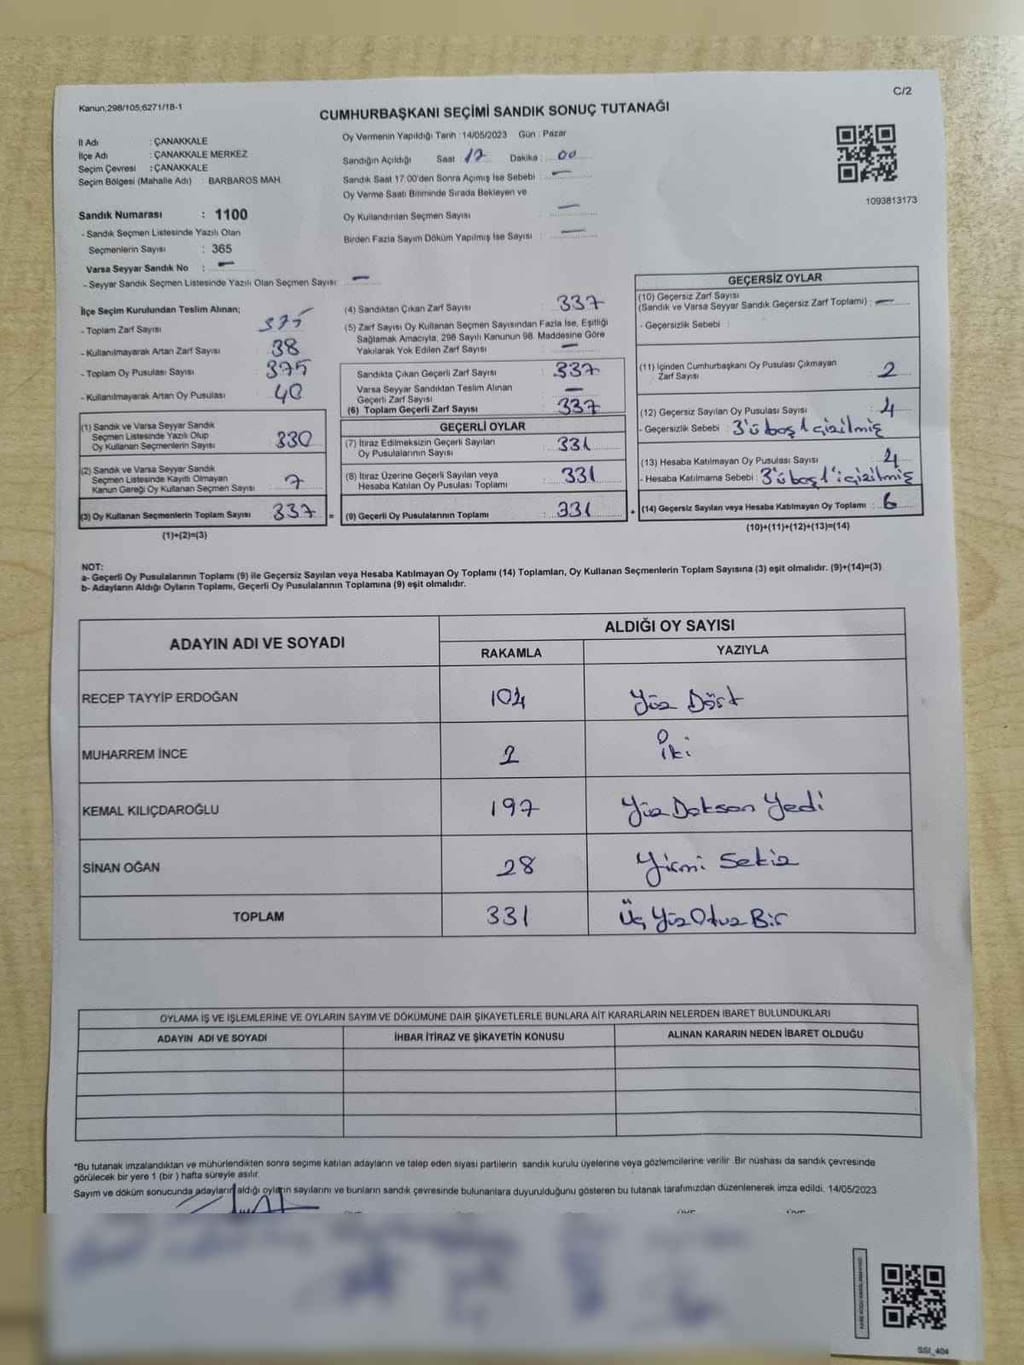 Kanun,298/105,6271/18-1
C/2
CUMHURBAŞKANI SEÇİMİ SANDIK SONUÇ TUTANAĞI
İl Adı : ÇANAKKALE
İlçe Adı : ÇANAKKALE MERKEZ
Seçim Çevresi : ÇANAKKALE
Seçim Bölgesi (Mahalle Adı) : BARBAROS MAH.
Sandık Numarası : 1100
- Sandık Seçmen Listesinde Yazılı Olan
Seçmenlerin Sayısı : 365
Varsa Seyyar Sandık No : —
- Seyyar Sandık Seçmen Listesinde Yazılı Olan Seçmen Sayısı: —
Oy Vermenin Yapıldığı Tarih : 14/05/2023 Gün : Pazar
Sandığın Açıldığı Saat 17 Dakika : 00
Sandık Saat 17:00'den Sonra Açımış İse Sebebi : —
Oy Verme Saati Bitiminde Sırada Bekleyen ve
Oy Kullandırılan Seçmen Sayısı : —
Birden Fazla Sayım Döküm Yapılmış İse Sayısı : —
1093813173
İlçe Seçim Kurulundan Teslim Alınan;
- Toplam Zarf Sayısı : 375
- Kullanılmayarak Artan Zarf Sayısı : 38
- Toplam Oy Pusulası Sayısı : 375
- Kullanılmayarak Artan Oy Pusulası : 40
(1) Sandık ve Varsa Seyyar Sandık
Seçmen Listesinde Yazılı Olup
Oy Kullanan Seçmenlerin Sayısı : 330
(2) Sandık ve Varsa Seyyar Sandık
Seçmen Listesinde Kayıtlı Olmayan
Kanun Gereği Oy Kullanan Seçmen Sayısı : 7
(3) Oy Kullanan Seçmenlerin Toplam Sayısı : 337 =
(1)+(2)=(3)
(4) Sandıktan Çıkan Zarf Sayısı : 337
(5) Zarf Sayısı Oy Kullanan Seçmen Sayısından Fazla İse, Eşitliği
Sağlamak Amacıyla, 298 Sayılı Kanunun 98. Maddesine Göre
Yakılarak Yok Edilen Zarf Sayısı : —
Sandıkta Çıkan Geçerli Zarf Sayısı : 337
Varsa Seyyar Sandıktan Teslim Alınan
Geçerli Zarf Sayısı : —
(6) Toplam Geçerli Zarf Sayısı : 337
GEÇERLİ OYLAR
(7) İtiraz Edilmeksizin Geçerli Sayılan
Oy Pusulalarının Sayısı : 331
(8) İtiraz Üzerine Geçerli Sayılan veya
Hesaba Katılan Oy Pusulası Toplamı : 331
(9) Geçerli Oy Pusulalarının Toplamı : 331 +
GEÇERSİZ OYLAR
(10) Geçersiz Zarf Sayısı
(Sandık ve Varsa Seyyar Sandık Geçersiz Zarf Toplamı) : —
- Geçersizlik Sebebi :
(11) İçinden Cumhurbaşkanı Oy Pusulası Çıkmayan
Zarf Sayısı : 2
(12) Geçersiz Sayılan Oy Pusulası Sayısı : 4
- Geçersizlik Sebebi : 3'ü boş 1 çizilmiş
(13) Hesaba Katılmayan Oy Pusulası Sayısı : 4
- Hesaba Katılmama Sebebi : 3'ü boş 1'i çizilmiş
(14) Geçersiz Sayılan veya Hesaba Katılmayan Oy Toplamı : 6
(10)+(11)+(12)+(13)=(14)
NOT:
a- Geçerli Oy Pusulalarının Toplamı (9) ile Geçersiz Sayılan veya Hesaba Katılmayan Oy Toplamı (14) Toplamları, Oy Kullanan Seçmenlerin Toplam Sayısına (3) eşit olmalıdır. (9)+(14)=(3)
b- Adayların Aldığı Oyların Toplamı, Geçerli Oy Pusulalarının Toplamına (9) eşit olmalıdır.
ADAYIN ADI VE SOYADI
ALDIĞI OY SAYISI
RAKAMLA YAZIYLA
RECEP TAYYİP ERDOĞAN 104 Yüz Dört
MUHARREM İNCE 2 iki
KEMAL KILIÇDAROĞLU 197 Yüz Doksan Yedi
SİNAN OĞAN 28 Yirmi Sekiz
TOPLAM 331 Üç Yüz Otuz Bir
OYLAMA İŞ VE İŞLEMLERİNE VE OYLARIN SAYIM VE DÖKÜMÜNE DAİR ŞİKAYETLERLE BUNLARA AİT KARARLARIN NELERDEN İBARET BULUNDUKLARI
ADAYIN ADI VE SOYADI İHBAR İTİRAZ VE ŞİKAYETİN KONUSU ALINAN KARARIN NEDEN İBARET OLDUĞU
*Bu tutanak imzalandıktan ve mühürlendikten sonra seçime katılan adayların ve talep eden siyasi partilerin sandık kurulu üyelerine veya gözlemcilerine verilir. Bir nüshası da sandık çevresinde
görülecek bir yere 1 (bir ) hafta süreyle asılır.
Sayım ve döküm sonucunda adayların aldığı oyların sayılarını ve bunların sandık çevresinde bulunanlara duyurulduğunu gösteren bu tutanak tarafımızdan düzenlenerek imza edildi. 14/05/2023
SSI_404